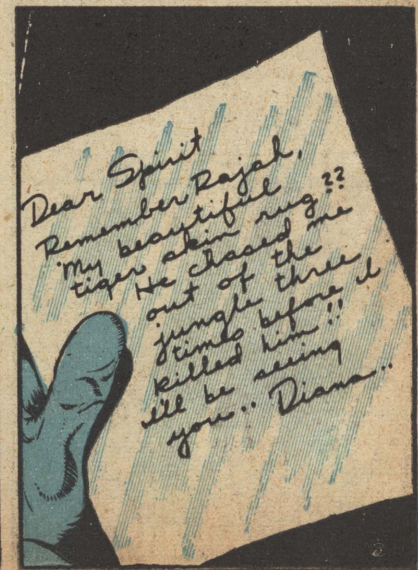 Dear Spirit
Remember Rajah,
My beautiful
tiger skin rug??
He chased me
out of the
jungle three
times before I
killed him!!
I'll be seeing
you.. Diana..
2